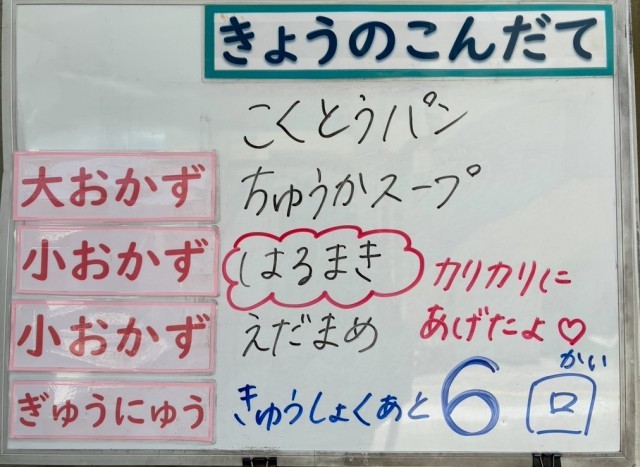 きょうのこんだて
こくとうパン
大おかず ちゅうかスープ
小おかず はるまき カリカリに
あげたよ♡
小おかず えだまめ
ぎゅうにゅう
きゅうしょくあと6回
かい